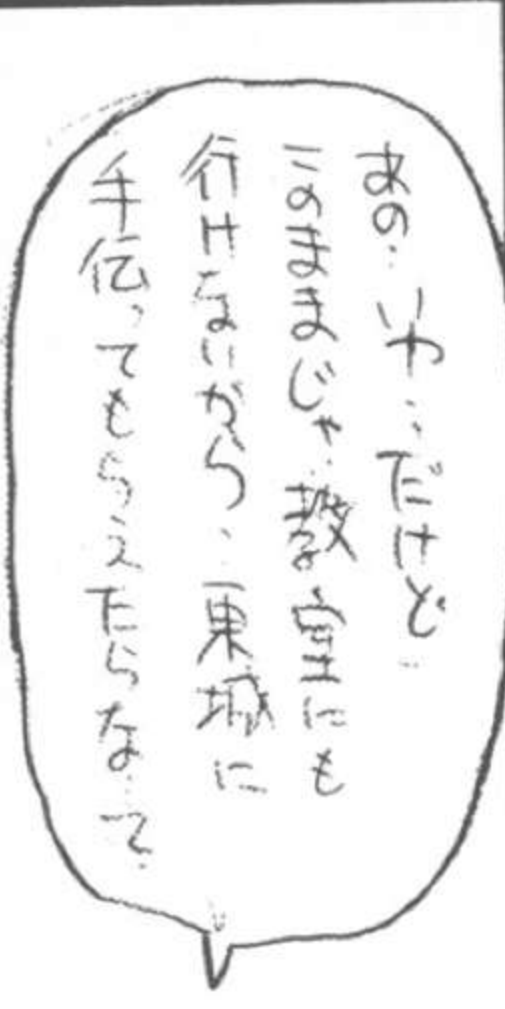 あの…いや…だけど…
このままじゃ…教室にも
行けないから…東城に
手伝ってもらえたらな…って…